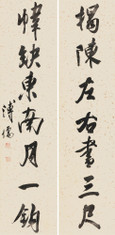 榻陳左右書三尺
幃缺東南月一鈎
溥儒